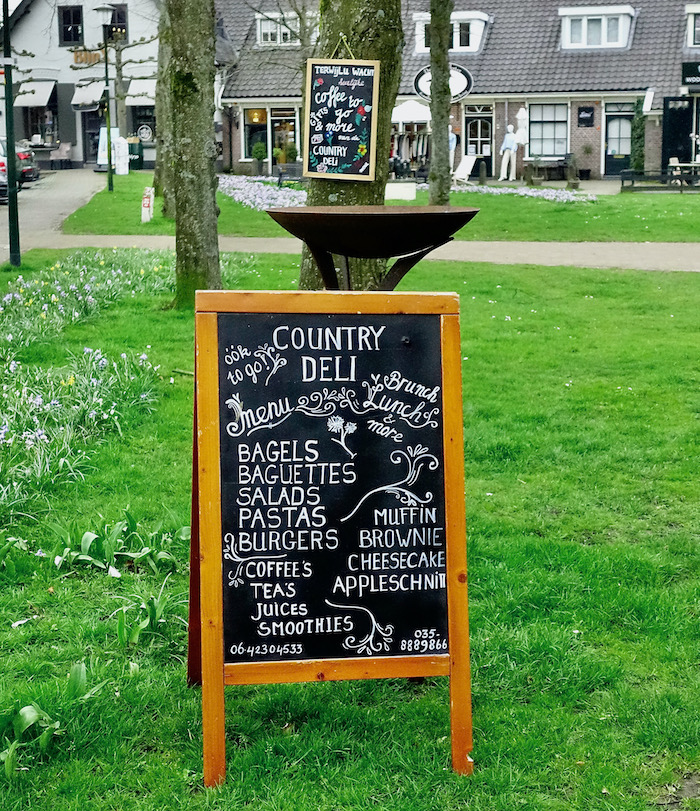 TERWIJL U WACHT
heerlijke
coffee to
go
& more
van de
COUNTRY
DELI
COUNTRY
DELI
óók
to go!
Menu
Brunch
Lunch
&
more
BAGELS
BAGUETTES
SALADS
PASTAS
BURGERS
COFFEE'S
TEA'S
JUICES
SMOOTHIES
MUFFIN
BROWNIE
CHEESECAKE
APPLESCHNIT
06-42304533
035-
8889866